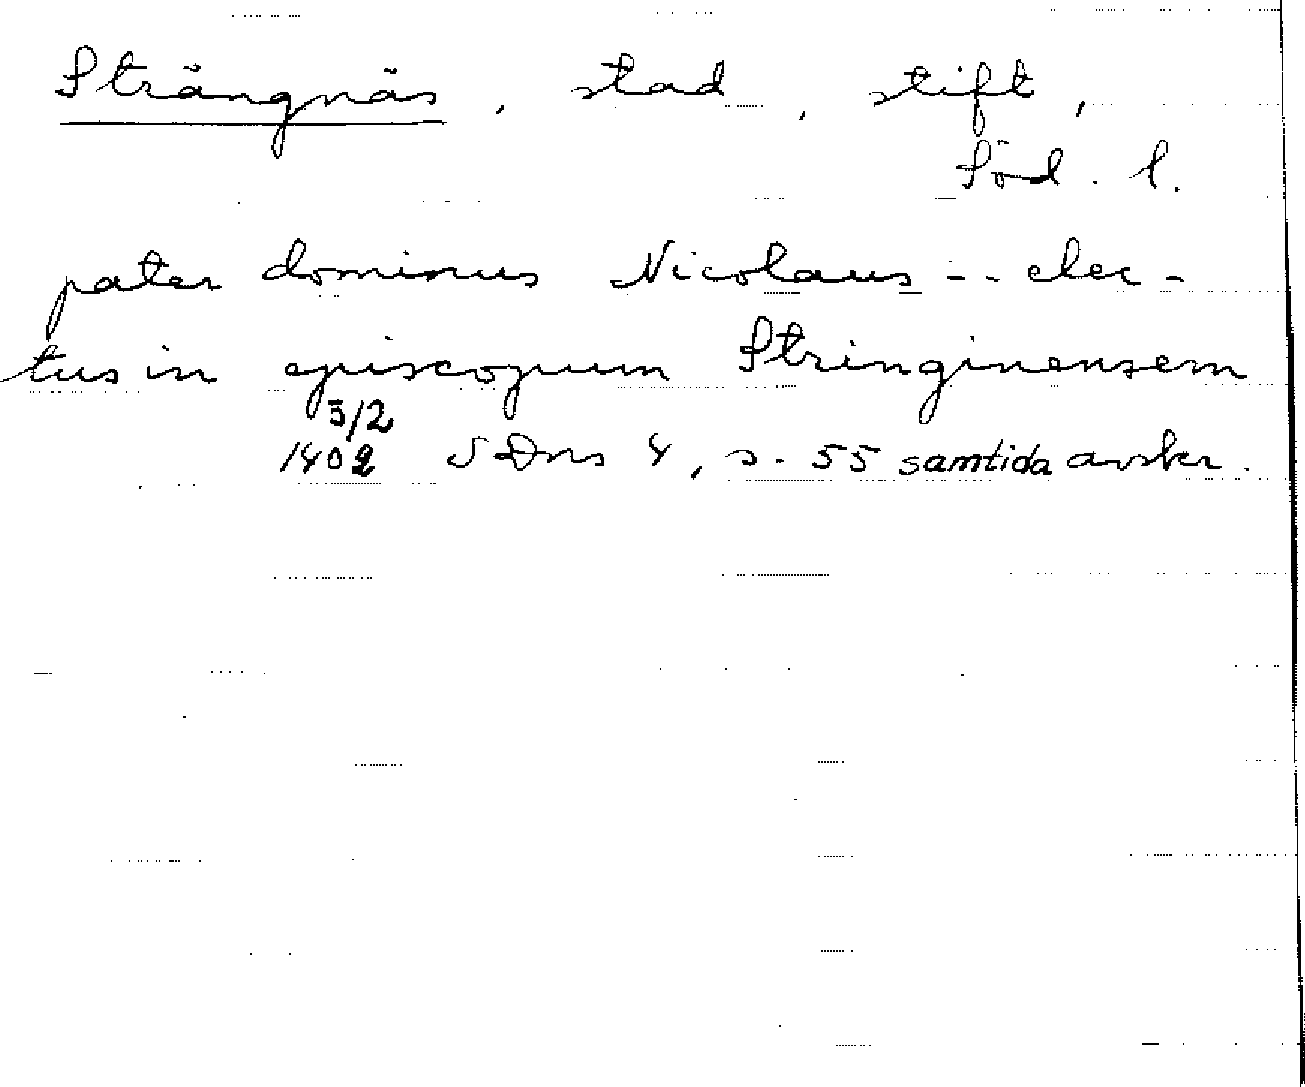 Strängnäs, stad, stift,
Söd. l.
pater dominus Nicolaus -- elec-
tus in episcopum Stringinensem
3/2
1402 SDns 4, s. 55 samtida avskr.